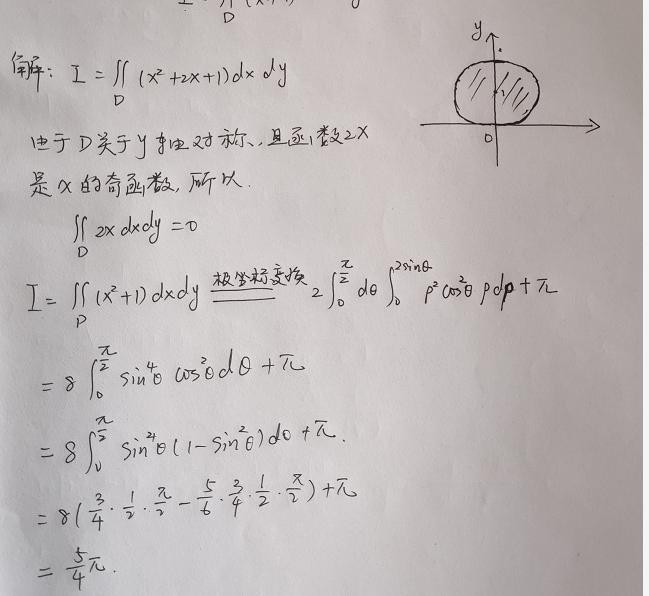 D
解: I = ∬_D (x²+2x+1) dx dy
y
0
由于 D 关于 y 轴对称、且函数 2x
是 x 的奇函数, 所以.
∬_D 2x dx dy = 0
I = ∬_D (x²+1) dx dy 极坐标变换 2∫_0^{π/2} dθ ∫_0^{2sinθ} ρ²cos²θ ρdρ + π
= 8 ∫_0^{π/2} sin⁴θ cos²θ dθ + π
= 8 ∫_0^{π/2} sin⁴θ (1 - sin²θ) dθ + π.
= 8 ( 3/4 · 1/2 · π/2 - 5/6 · 3/4 · 1/2 · π/2 ) + π
= 5/4 π.